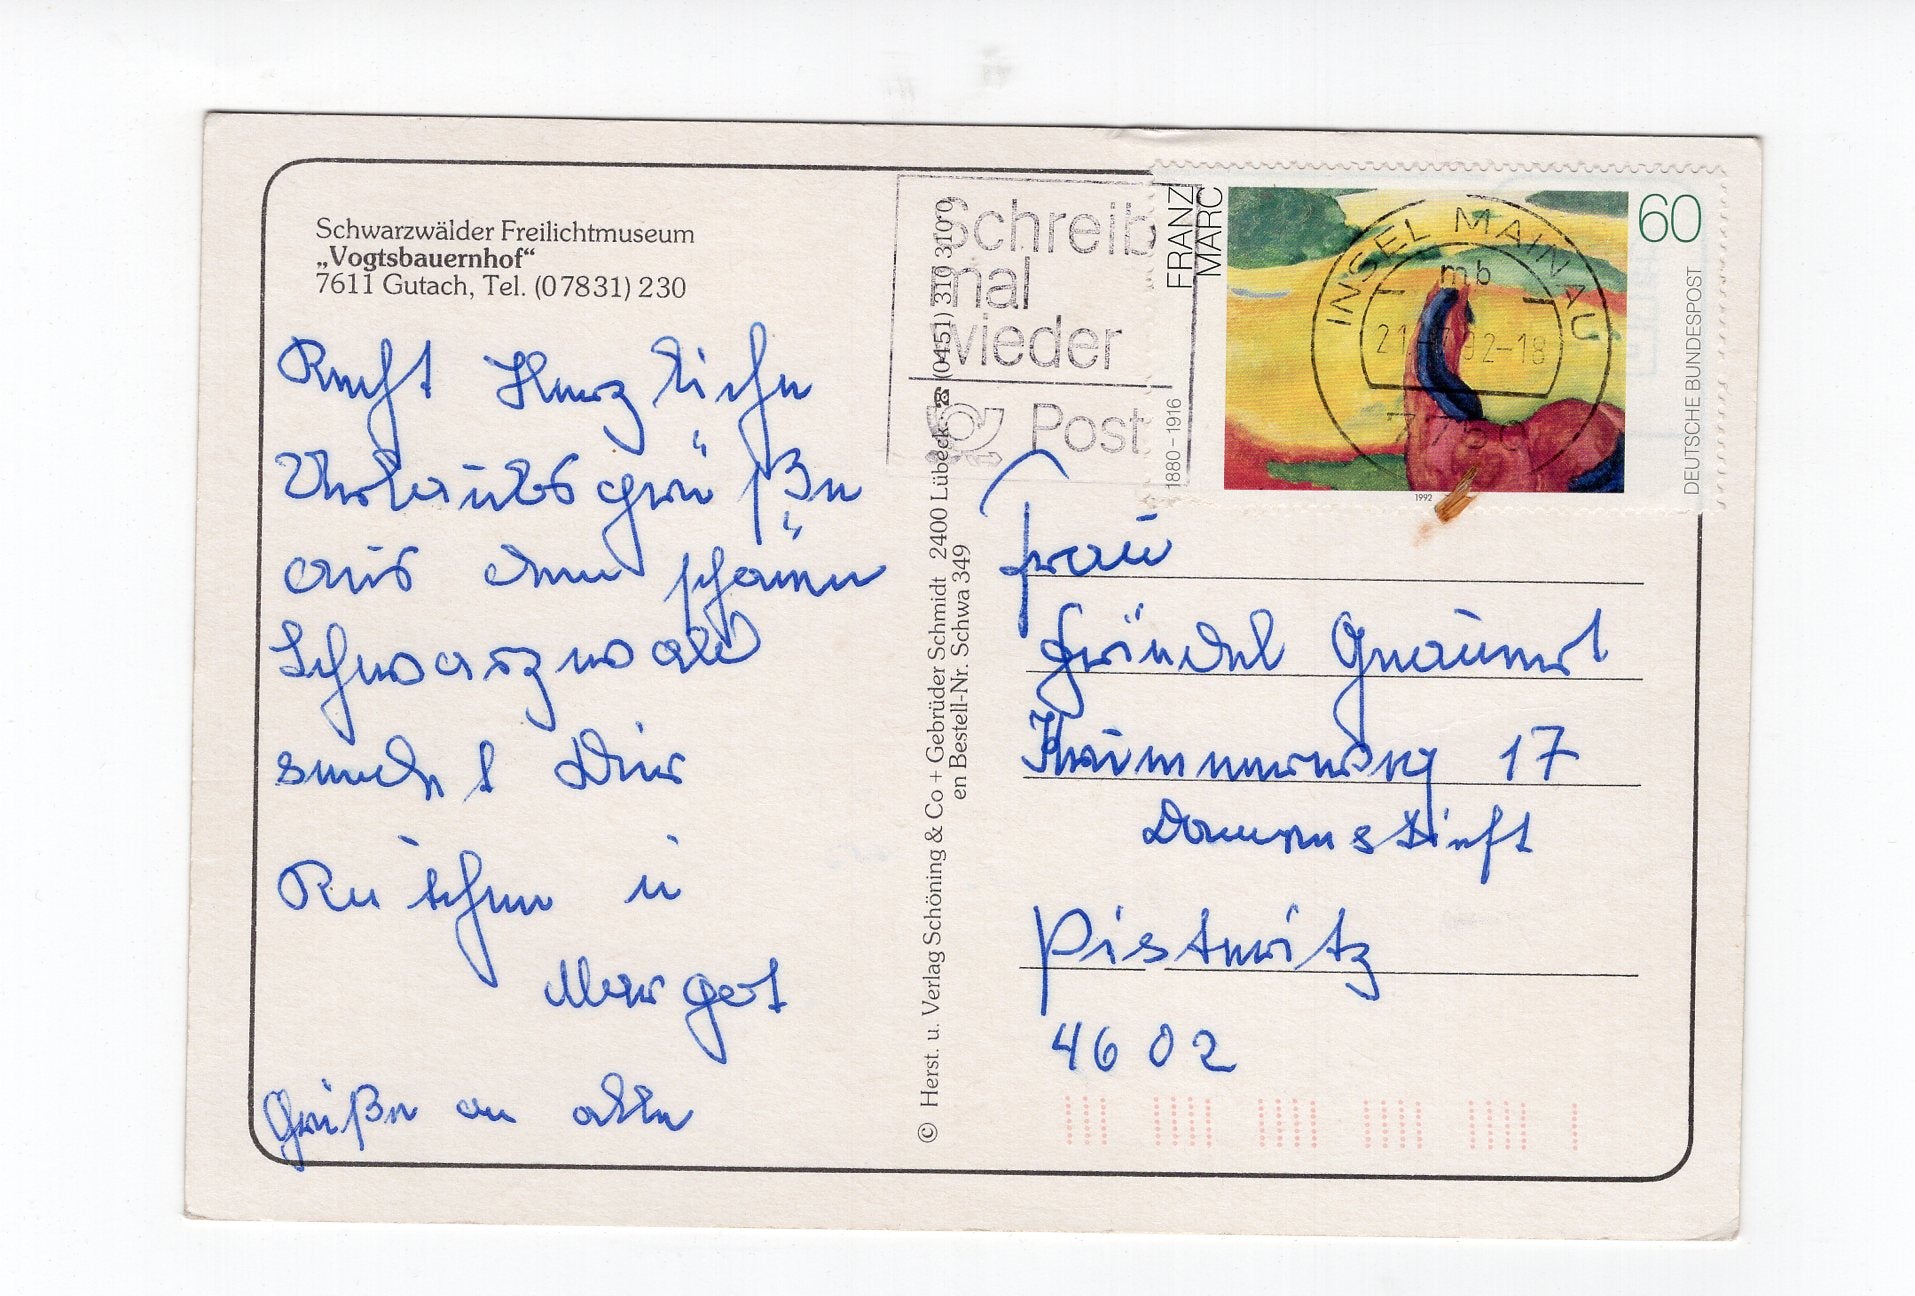 Schwarzwälder Freilichtmuseum
„Vogtsbauernhof“
7611 Gutach, Tel. (07831) 230
Recht Herzliche
Urlaubsgrüße
aus dem schönen
Schwarzwald
sendet Dir
u
Margot
Grüße an alle
© Herst. u. Verlag Schöning & Co + Gebrüder Schmidt 2400 Lübeck ☎ (0451) 310 310
en Bestell-Nr. Schwa 349
Schreib
mal
wieder
Post
FRANZ
MARC
1880–1916
60
DEUTSCHE BUNDESPOST
1992
INSEL MAINAU
mb
92-18
Frau
17
Piesteritz
4602